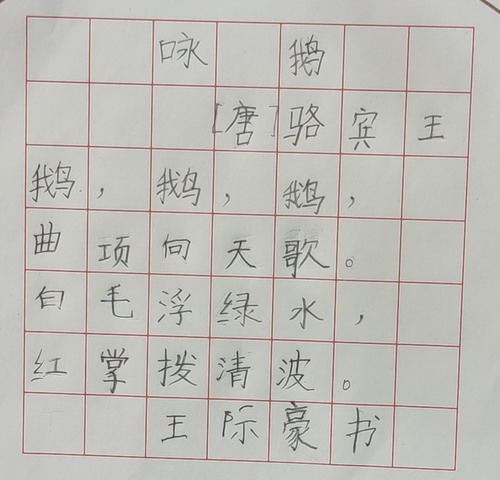 咏鹅
[唐]骆宾王
鹅，鹅，鹅，
曲项向天歌。
白毛浮绿水，
红掌拨清波。
王际豪书